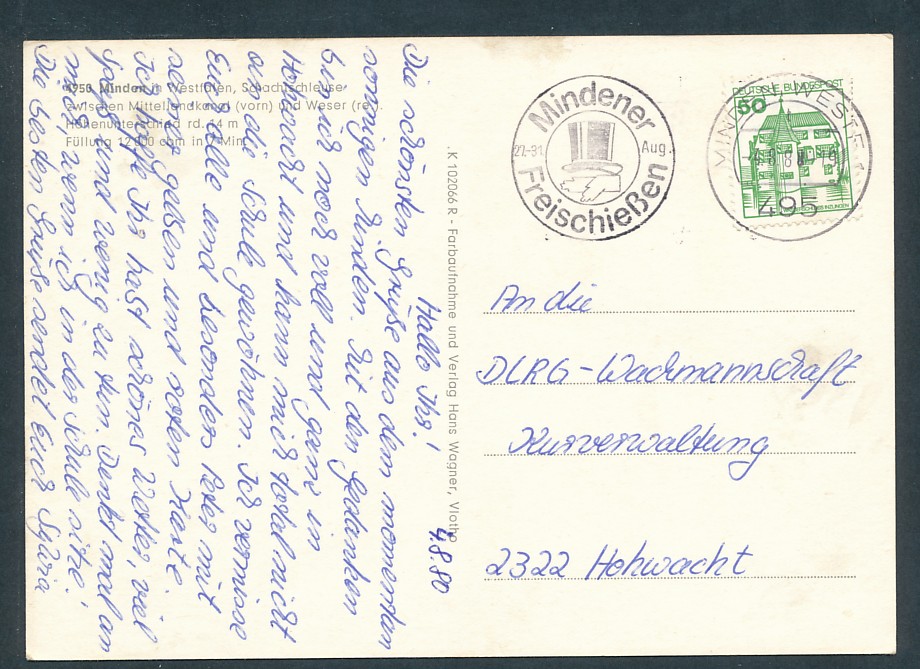 4950 Minden in Westfalen, Schachtschleuse
zwischen Mittellandkanal (vorn) und Weser (re.).
Höhenunterschied rd. 14 m
Füllung 12 000 cbm in 7 Min.
4.8.80
Hallo Ihr!
Die schönsten Grüße aus dem momentan
sonnigen Minden. Mit den Gedanken
bin ich noch voll und ganz in
Hohwacht und kann mich total nicht
an die Schule gewöhnen. Ich vermisse
Euch alle und besonders Peter mit
seiner gelben und roten Kiste.
Ich hoffe Ihr habt schönes Wetter, viel
Spaß und wenig zu tun. Denkt mal an
mich, wenn ich in der Schule sitze!
Die besten Grüße sendet Euch Sylvia
K 102066 R - Farbaufnahme und Verlag Hans Wagner, Vlotho
Mindener
27.-31. Aug.
Freischießen
DEUTSCHE BUNDESPOST
50
495
An die
DLRG-Wachmannschaft
Kurverwaltung
2322 Hohwacht